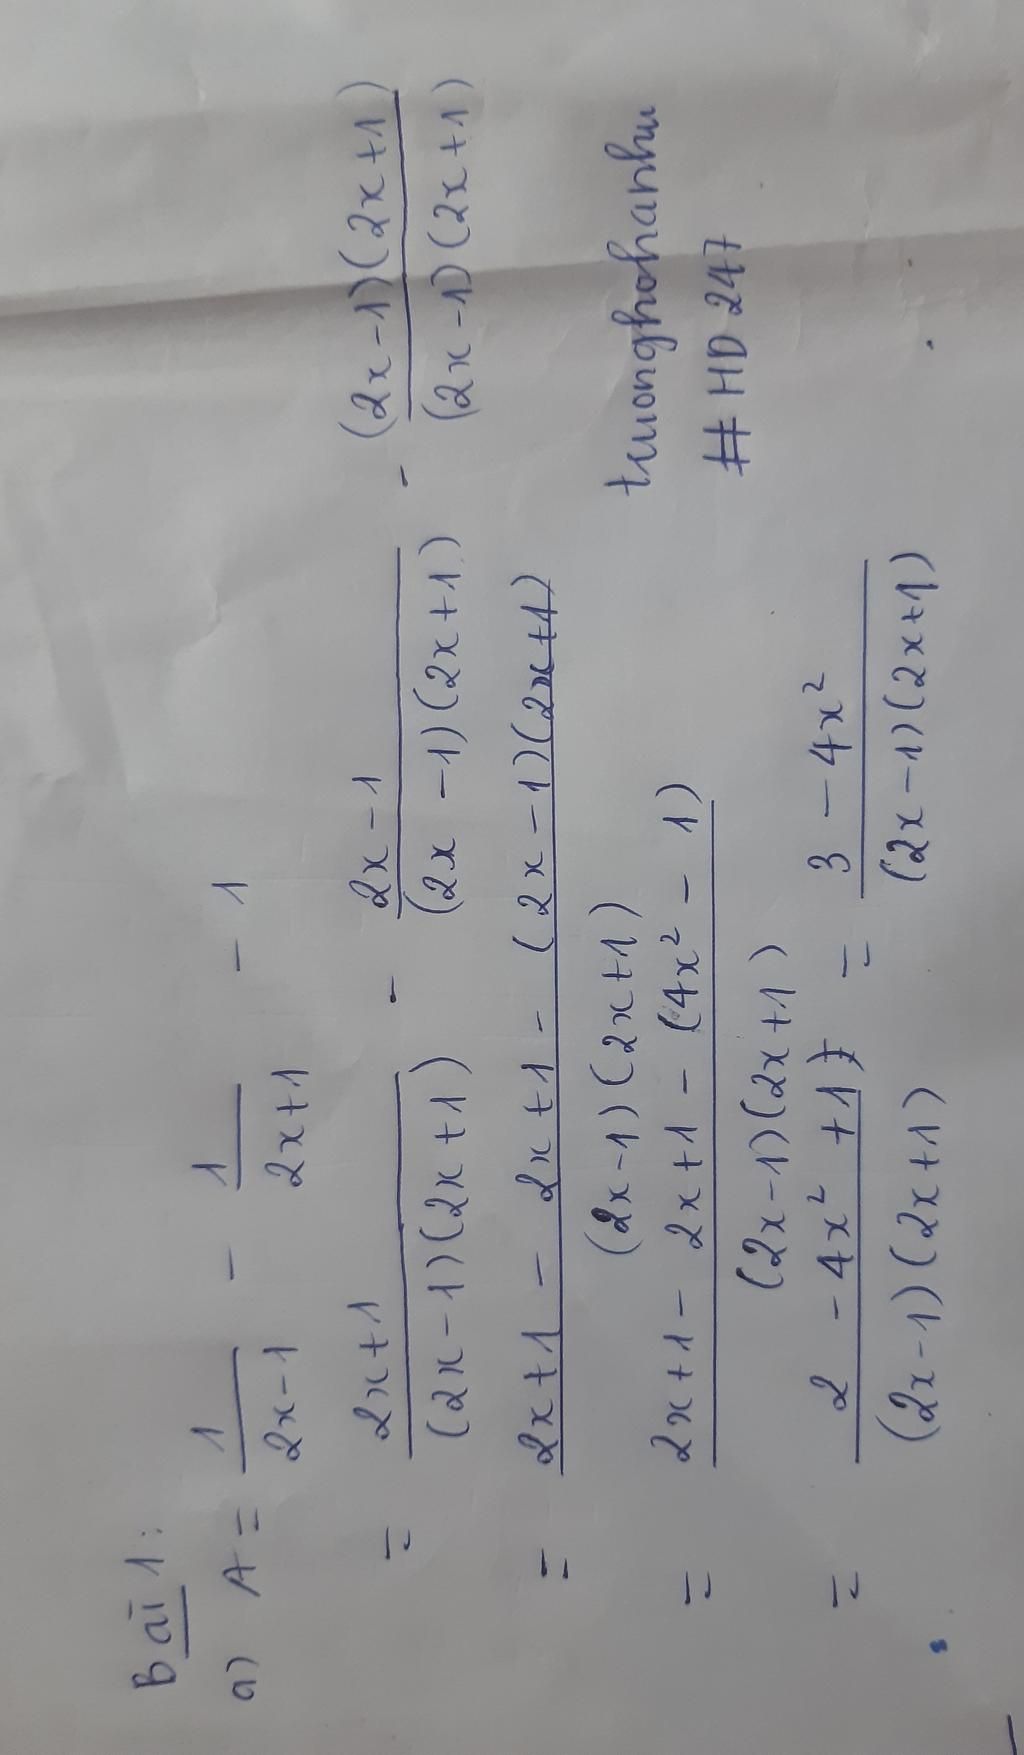 Bài 1:
a) A = 1/(2x-1) - 1/(2x+1) - 1
= (2x+1)/((2x-1)(2x+1)) - (2x-1)/((2x-1)(2x+1)) - ((2x-1)(2x+1))/((2x-1)(2x+1))
= (2x+1 - 2x+1 - (2x-1)(2x+1))/((2x-1)(2x+1))
= (2x+1 - 2x+1 - (4x² - 1))/((2x-1)(2x+1))
= (2 - 4x² + 1)/((2x-1)(2x+1)) = (3 - 4x²)/((2x-1)(2x+1))
truonghohanhu
# HD 247